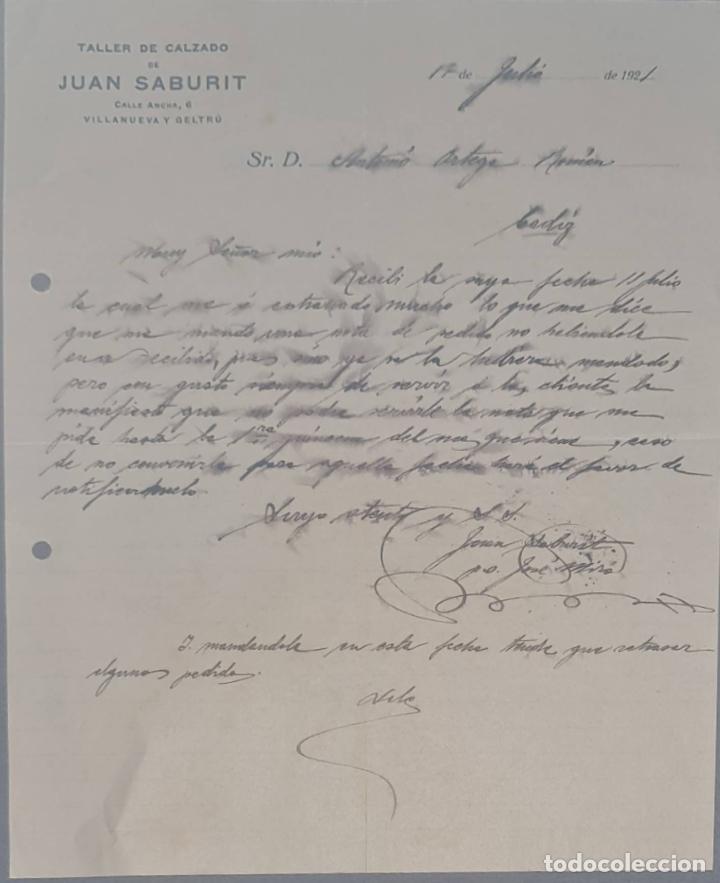 TALLER DE CALZADO
DE
JUAN SABURIT
CALLE ANCHA, 6
VILLANUEVA Y GELTRÚ
17 de Julio de 1921
Sr. D. Antonio Ortega Román
Cadiz
Muy Señor mio:
Recibi la suya fecha 11 Julio
la cual me á estrañado mucho lo que me dice
que me mando una nota de pedido no habiendola
recibido, pues sino ya se la hubiera mandado,
pero con gusto siempre de servir á la clienta le
manifiesto que no podre servirle la nota que me
pide hasta la 1ra quincena del mes, caso
de no convenirle para aquella fecha hará el favor de
notificarmelo
Suyo atento y S. S.
Juan Saburit
p.o. José Miró
I mandandola en esta fecha tendre que retrasar
algunos pedidos.
Vale
todocoleccion